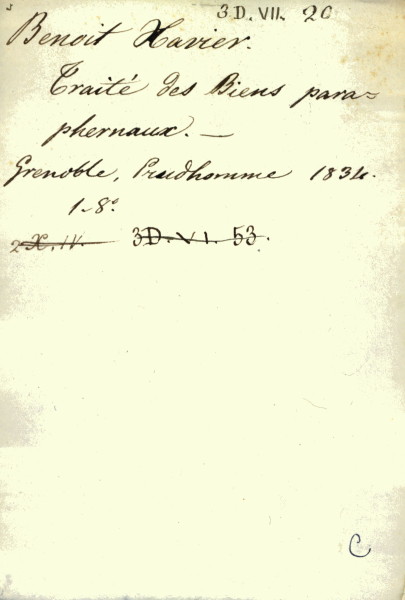 3 D. VII. 20
Benoit Xavier.
Traité des Biens para=
phernaux. —
Grenoble, Prudhomme 1834.
1-8º.
2 X. IV. 3 D. VI. 53.
C